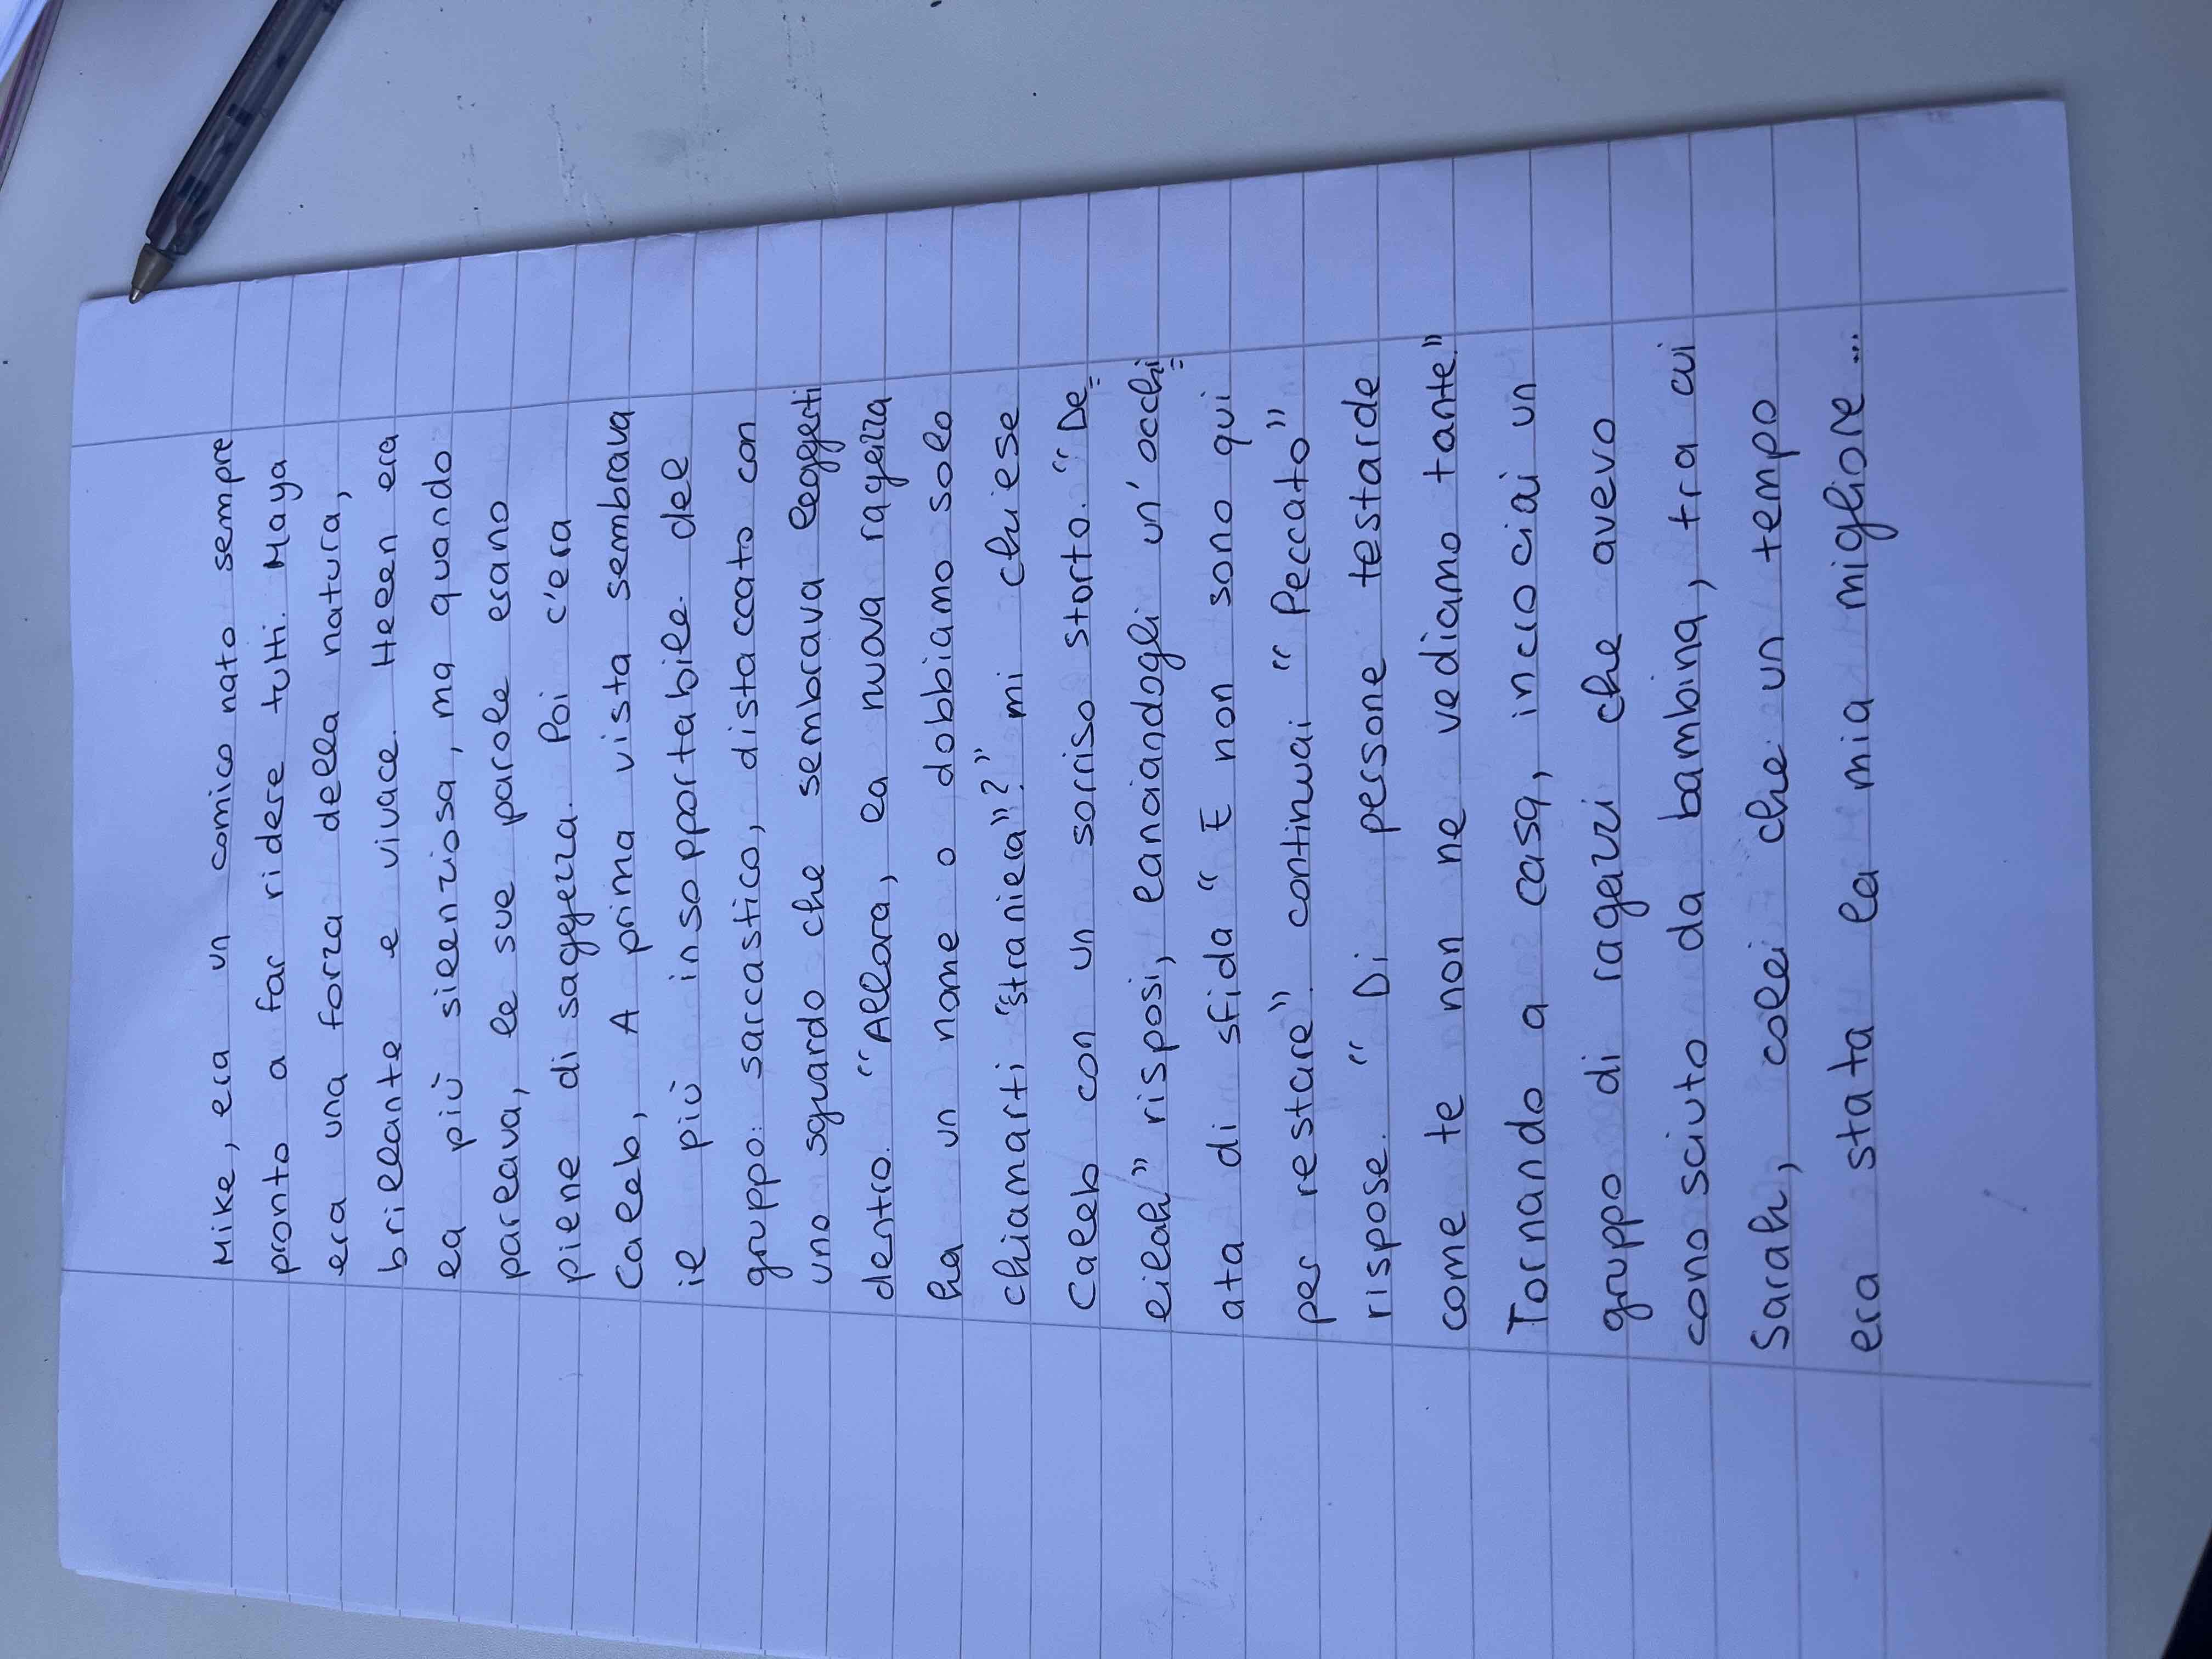 Mike, era un comico nato sempre
pronto a far ridere tutti. Maya
era una forza della natura,
brillante e vivace. Helen era
la più silenziosa, ma quando
parlava, le sue parole erano
piene di saggezza. Poi c'era
Caleb, A prima vista sembrava
il più insopportabile. del
gruppo: sarcastico, distaccato con
uno sguardo che sembrava leggerti
dentro. "Allora, la nuova ragazza
ha un nome o dobbiamo solo
chiamarti "straniera"?" mi chiese
Caleb con un sorriso storto. "De=
lilah" risposi, lanciandogli un'occhi=
ata di sfida " E non sono qui
per restare". continuai " Peccato"
rispose. " Di persone testarde
come te non ne vediamo tante."
Tornando a casa, incrociai un
gruppo di ragazzi che avevo
conosciuto da bambina, tra cui
Sarah, colei che un tempo
era stata la mia migliore...